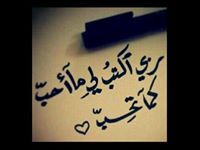 ربي أكتب لي ما أحبّ
كما تحبّ ♡